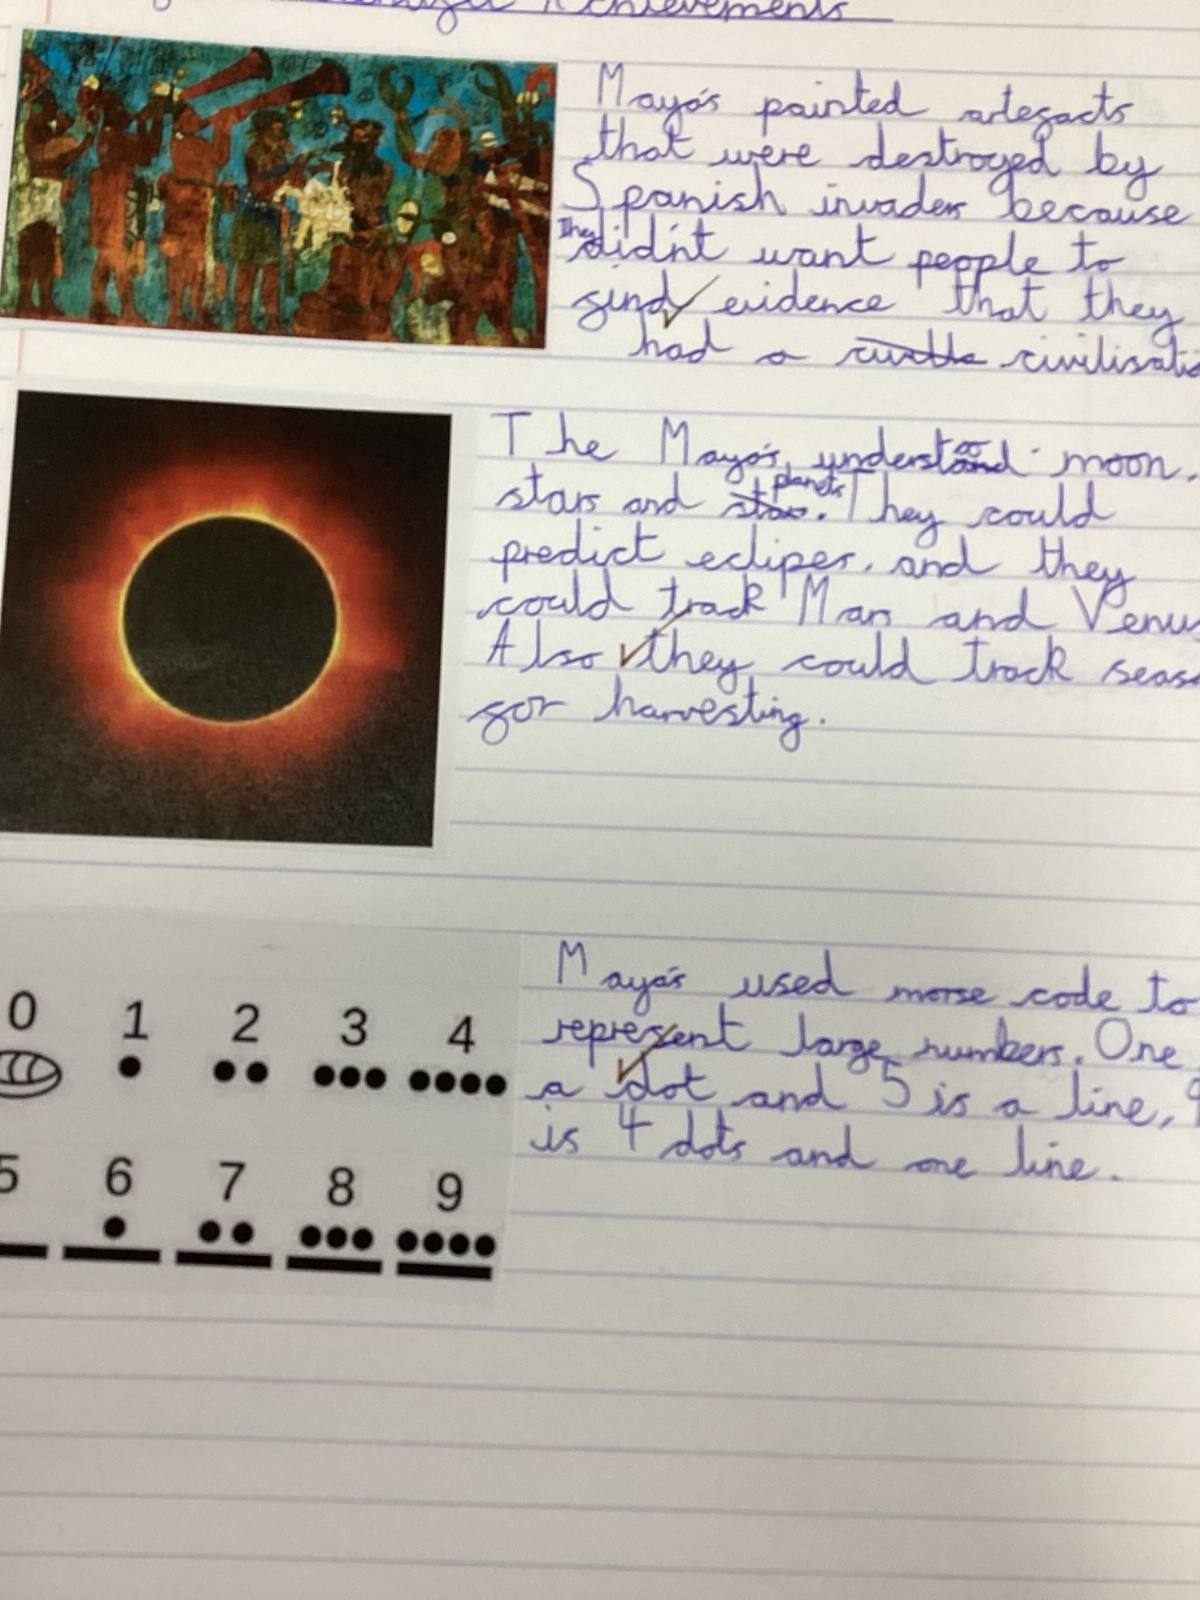 Achievements
Maya's painted artefacts
that were destroyed by
Spanish invaders because
They didn't want people to
find evidence that they
had a civilisatio
The Maya's understood moon,
stars and planets. They could
predict eclipes, and they
could track Mars and Venus
Also they could track seas
for harvesting.
Maya's used morse code to
represent large numbers. One
a dot and 5 is a line, 9
is 4 dots and one line.
0 1 2 3 4
5 6 7 8 9